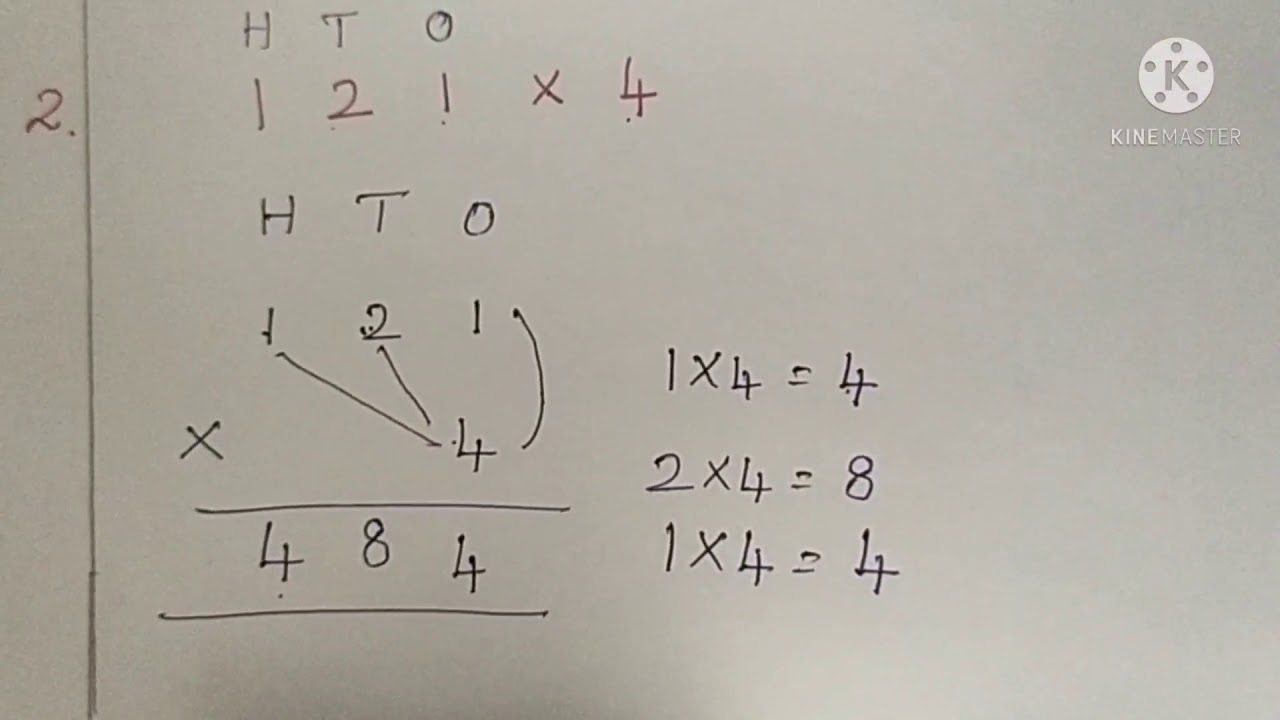 H T O
2. 1 2 1 × 4
H T O
1 2 1
× 4
4 8 4
1×4 = 4
2×4 = 8
1×4 = 4
K
KINEMASTER